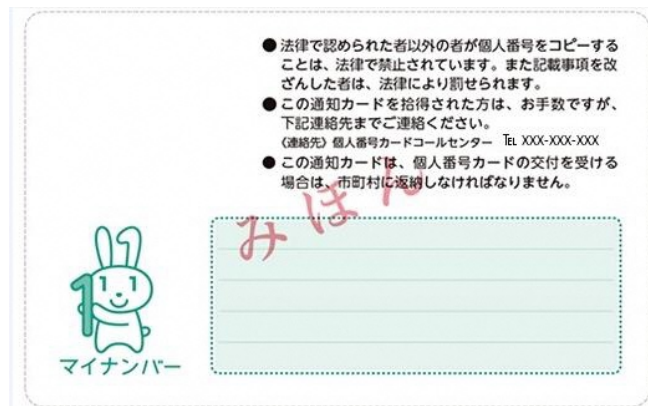 ● 法律で認められた者以外の者が個人番号をコピーする
ことは、法律で禁止されています。また記載事項を改
ざんした者は、法律により罰せられます。
● この通知カードを拾得された方は、お手数ですが、
下記連絡先までご連絡ください。
〈連絡先〉個人番号カードコールセンター TEL XXX-XXX-XXX
● この通知カードは、個人番号カードの交付を受ける
場合は、市町村に返納しなければなりません。
みほん
1
マイナンバー